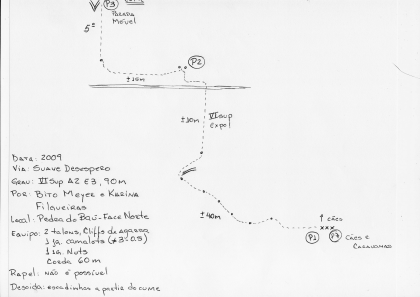 P3
PARADA
MÓVEL
5º
P2
±10m
±10m
VI Sup
EXPO!
±40m
↑ CÃES
P1
P7
CÃES E
CACHOEIRAS
DATA: 2009
VIA: SUAVE DESESPERO
GRAU: VI SUP A2 E3, 90m
POR: BITO MEYER E KARINA
FILGUEIRAS
LOCAL: PEDRA DO BAÚ - FACE NORTE
EQUIPO: 2 TALONS, CLIFFS DE AGARRA
1 JG. CAMALOTS (#3·0.5)
1 JG. NUTS
CORDA 60 m
RAPEL: NÃO É POSSÍVEL
DESCIDA: ESCADINHAS A PARTIR DO CUME